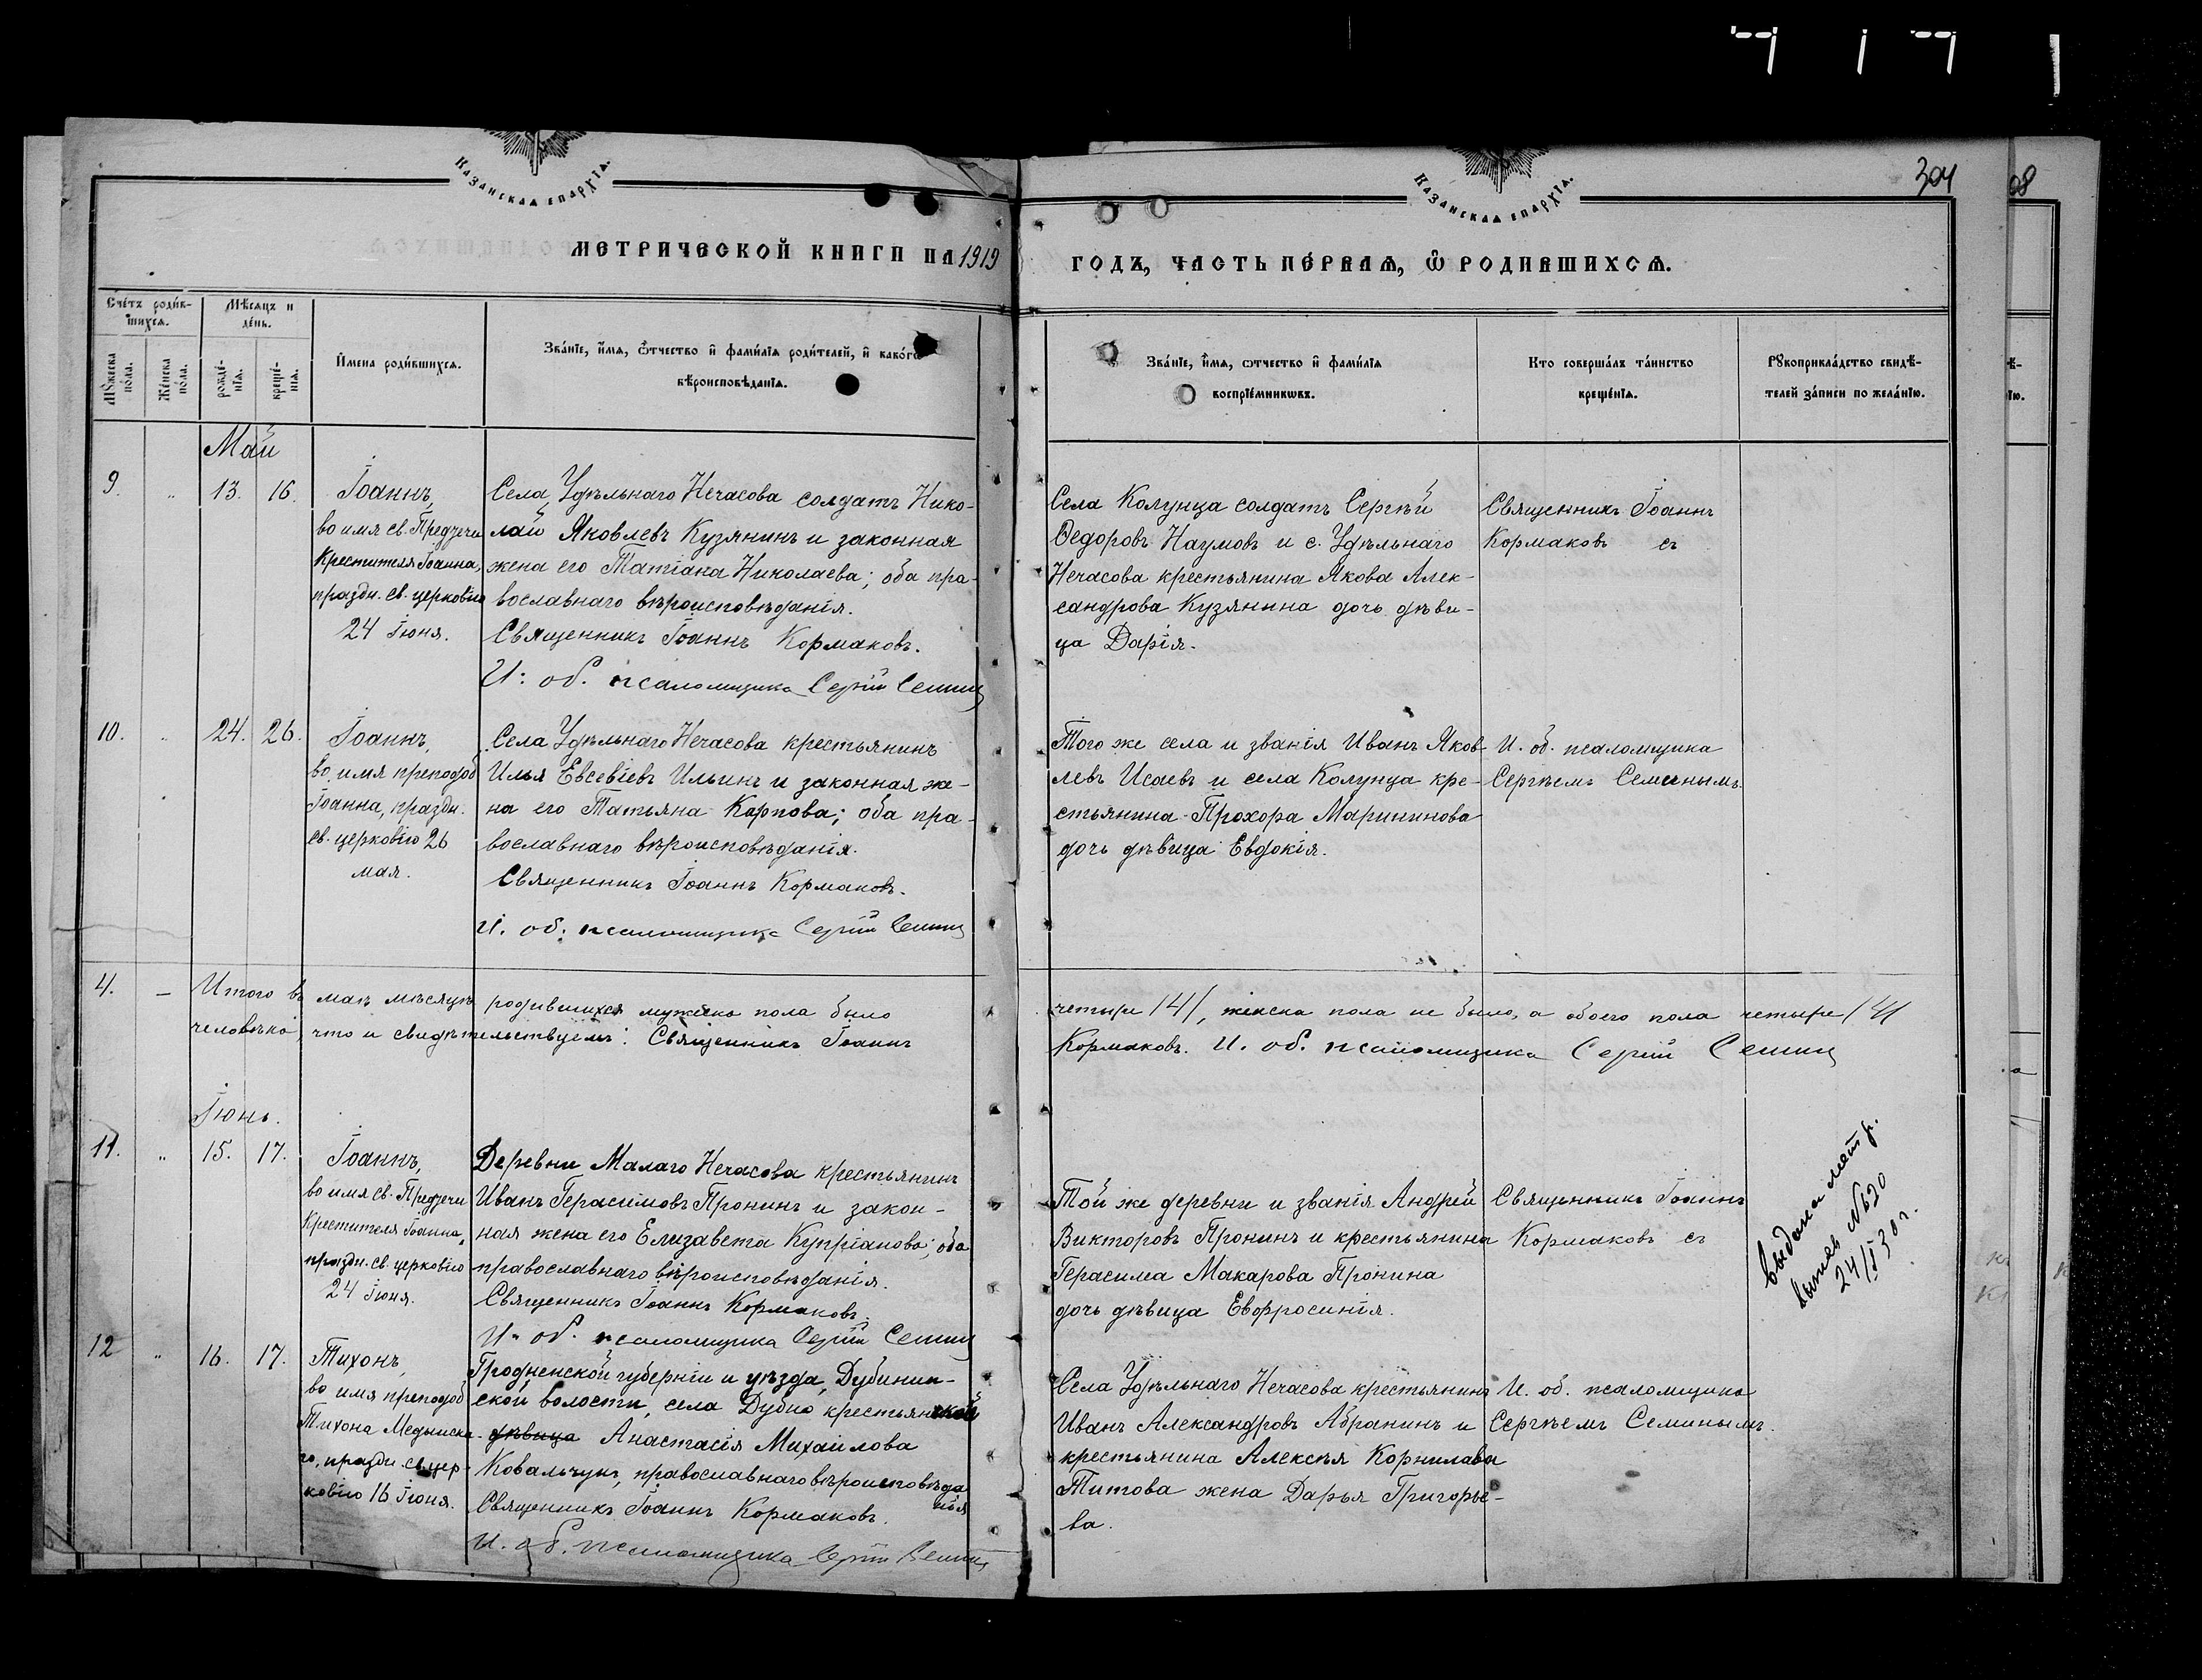 304
08
Казанская епархїѧ.
Казанская епархїѧ.
МЕТРИЧЕСКОЙ КНИГИ НА 1919
ГОДЪ, ЧАСТЬ ПЕ́РВАѦ, Ѿ РОДИВШИХСѦ.
Сче́тъ роди́в-
шихсѧ.
Мѣ́сѧцъ и
де́нь.
Мꙋ́жеска
по́ла.
Же́нска
по́ла.
рожде́-
нїѧ.
креще́-
нїѧ.
И҆мена роди́вшихсѧ.
Зва́нїе, и҆́мѧ, ѻ҆́тчество и҆ фами́лїѧ роди́телей, и҆ како́гѡ
вѣроисповѣ́данїѧ.
Зва́нїе, и҆́мѧ, ѻтчество и҆ фами́лїѧ
воспрїе́мникѡвъ.
Кто соверша́лъ та́инство
креще́нїѧ.
Рꙋкоприкла́дство свидѣ́-
телей за́писи по жела́нїю.
Май
9. „ 13. 16.
Іоаннъ,
во имя св. Предтечи
Крестителя Іоанна,
праздн. св. церковію
24 Іюня.
Села Удѣльнаго Нечасова солдатъ Нико-
лай Яковлевъ Кузянинъ и законная
жена его Татіана Николаева; оба пра-
вославнаго вѣроисповѣданія.
Священникъ Іоаннъ Кормаковъ.
И: об. псаломщика Сергій Семинъ
Села Колунца солдатъ Сергѣй
Ѳедоровъ Наумовъ и с. Удѣльнаго
Нечасова крестьянина Якова Алек-
сандрова Кузянина дочь дѣви-
ца Дарія.
Священникъ Іоаннъ
Кормаковъ съ
10. „ 24. 26.
Іоаннъ,
во имя преподоб
Іоанна, праздн.
св. церковію 26
мая.
Села Удѣльнаго Нечасова крестьянинъ
Илья Евсевіевъ Ильинъ и законная же-
на его Татьяна Карпова; оба пра-
вославнаго вѣроисповѣданія.
Священникъ Іоаннъ Кормаковъ.
И. об. псаломщика Сергій Семинъ
Того же села и званія Иванъ Яков-
левъ Исаевъ и села Колунца кре-
стьянина Прохора Марининова
дочь дѣвица Евдокія.
И. об. псаломщика
Сергѣемъ Семинымъ.
4. – Итого въ маѣ мѣсяцѣ родившихся мужеска пола было
четыре /4/, женска пола не было, а обоего пола четыре /4/
человѣка, что и свидѣтельствуемъ: Священникъ Іоаннъ
Кормаковъ. И. об. псаломщика Сергій Семинъ
Іюнь.
11. „ 15. 17.
Іоаннъ,
во имя св. Предтечи
Крестителя Іоанна,
праздн. св. церковію
24 Іюня.
Деревни Малаго Нечасова крестьянинъ
Иванъ Герасимовъ Пронинъ и закон-
ная жена его Елизавета Купріанова; оба
православнаго вѣроисповѣданія.
Священникъ Іоаннъ Кормаковъ
И. об. псаломщика Сергій Семинъ
Той же деревни и званія Андрей
Викторовъ Пронинъ и крестьянина
Герасима Макарова Пронина
дочь дѣвица Евфросинія.
Священникъ Іоаннъ
Кормаковъ съ
Выдана метр.
выпись №620
24/I 30 г.
12 „ 16. 17.
Тихонъ,
во имя преподоб
Тихона Медынска-
го, праздн. св. цер-
ковію 16 Іюня.
Гродненской губерніи и уѣзда, Дубинин-
ской волости, села Дубно крестьянской
дѣвица Анастасія Михайлова
Ковальчукъ, православнаго вѣроисповѣда
нія
Священникъ Іоаннъ Кормаковъ.
И. об. псаломщика Сергій Семинъ
Села Удѣльнаго Нечасова крестьянинъ
Иванъ Александровъ Абранинъ и
крестьянина Алексѣя Корнилава
Титова жена Дарья Григорье-
ва.
И. об. псаломщика
Сергѣемъ Семинымъ.